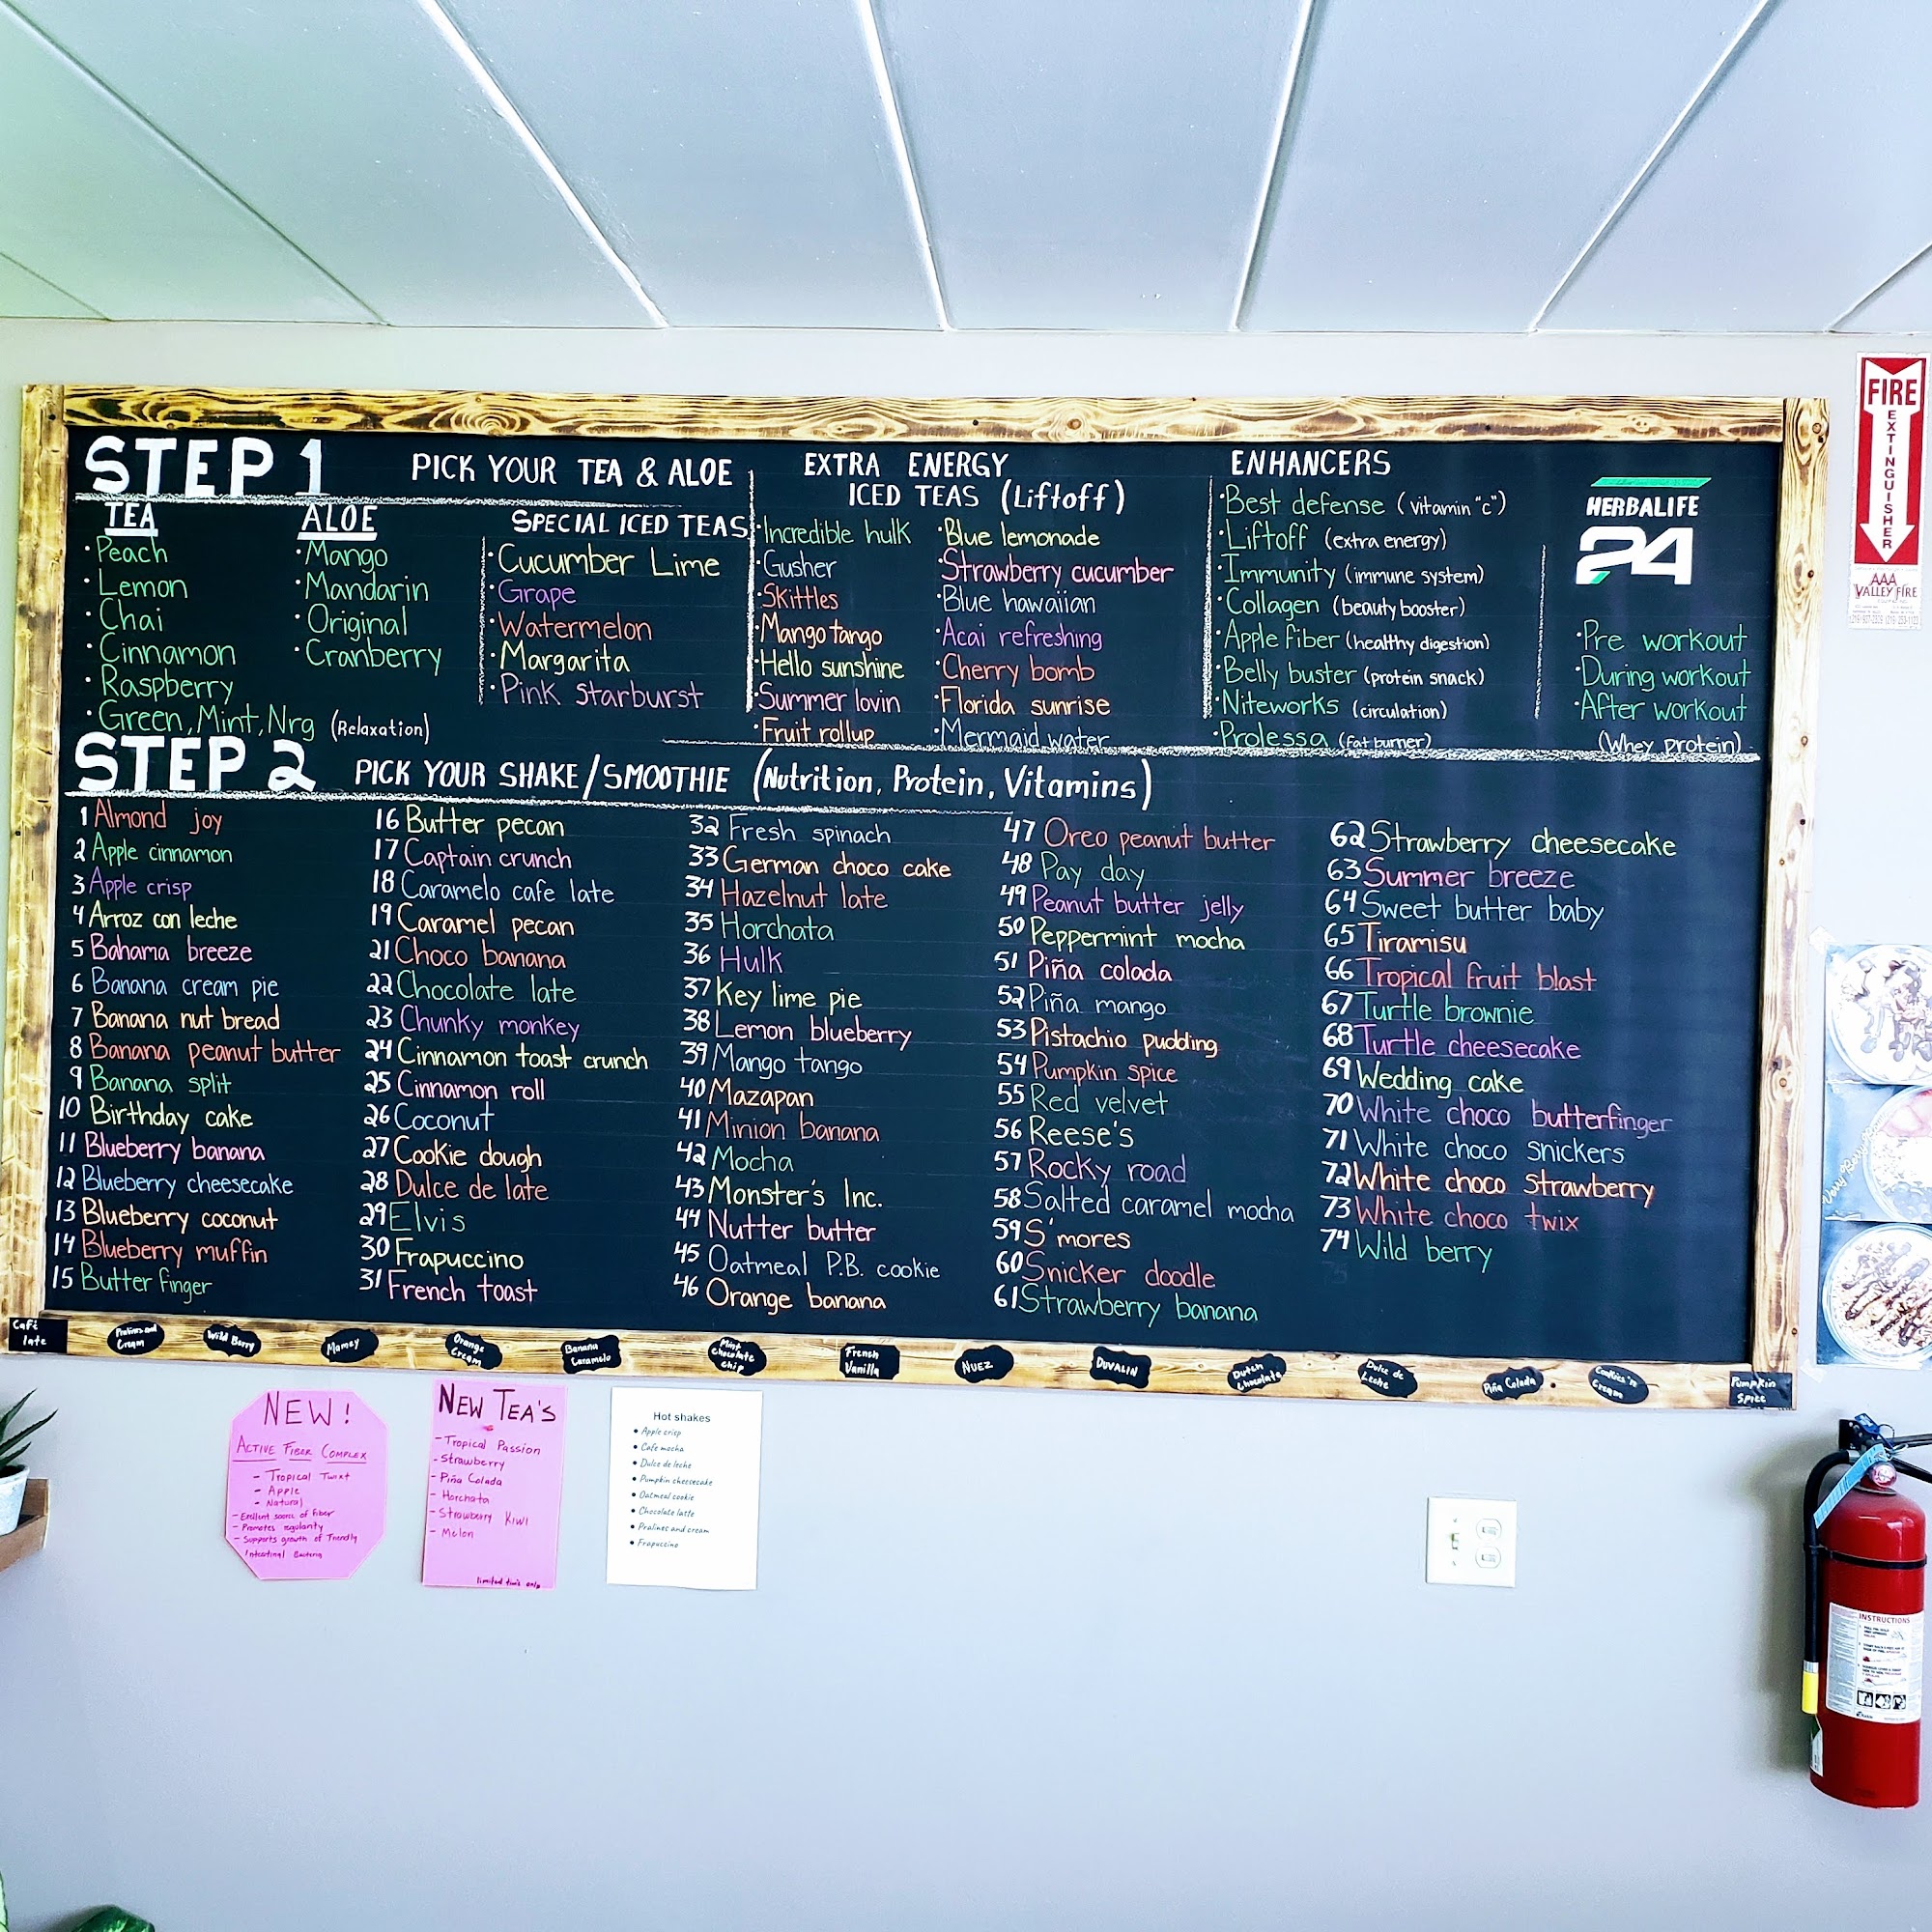 STEP 1
PICK YOUR TEA & ALOE
TEA
· Peach
· Lemon
· Chai
· Cinnamon
· Raspberry
· Green, Mint, Nrg (Relaxation)
ALOE
· Mango
· Mandarin
· Original
· Cranberry
SPECIAL ICED TEAS
· Cucumber Lime
· Grape
· Watermelon
· Margarita
· Pink Starburst
EXTRA ENERGY
ICED TEAS (Liftoff)
· Incredible hulk
· Gusher
· Skittles
· Mango tango
· Hello sunshine
· Summer lovin
· Fruit rollup
· Blue lemonade
· Strawberry cucumber
· Blue hawaiian
· Acai refreshing
· Cherry bomb
· Florida sunrise
· Mermaid water
ENHANCERS
· Best defense (vitamin "c")
· Liftoff (extra energy)
· Immunity (immune system)
· Collagen (beauty booster)
· Apple fiber (healthy digestion)
· Belly buster (protein snack)
· Niteworks (circulation)
· Prolessa (fat burner)
HERBALIFE
24
· Pre workout
· During workout
· After workout
(Whey protein)
STEP 2
PICK YOUR SHAKE/SMOOTHIE (Nutrition, Protein, Vitamins)
1 Almond joy
2 Apple cinnamon
3 Apple crisp
4 Arroz con leche
5 Bahama breeze
6 Banana cream pie
7 Banana nut bread
8 Banana peanut butter
9 Banana split
10 Birthday cake
11 Blueberry banana
12 Blueberry cheesecake
13 Blueberry coconut
14 Blueberry muffin
15 Butter finger
16 Butter pecan
17 Captain crunch
18 Caramelo cafe late
19 Caramel pecan
21 Choco banana
22 Chocolate late
23 Chunky monkey
24 Cinnamon toast crunch
25 Cinnamon roll
26 Coconut
27 Cookie dough
28 Dulce de late
29 Elvis
30 Frapuccino
31 French toast
32 Fresh spinach
33 German choco cake
34 Hazelnut late
35 Horchata
36 Hulk
37 Key lime pie
38 Lemon blueberry
39 Mango tango
40 Mazapan
41 Minion banana
42 Mocha
43 Monster's Inc.
44 Nutter butter
45 Oatmeal P.B. cookie
46 Orange banana
47 Oreo peanut butter
48 Pay day
49 Peanut butter jelly
50 Peppermint mocha
51 Piña colada
52 Piña mango
53 Pistachio pudding
54 Pumpkin spice
55 Red velvet
56 Reese's
57 Rocky road
58 Salted caramel mocha
59 S'mores
60 Snicker doodle
61 Strawberry banana
62 Strawberry cheesecake
63 Summer breeze
64 Sweet butter baby
65 Tiramisu
66 Tropical fruit blast
67 Turtle brownie
68 Turtle cheesecake
69 Wedding cake
70 White choco butterfinger
71 White choco snickers
72 White choco strawberry
73 White choco twix
74 Wild berry
Café
late
Pralines and
Cream
Wild Berry
Mamey
Orange
Cream
Banana
Caramelo
Mint
Chocolate
chip
French
Vanilla
NUEZ
DUVALIN
Dutch
Chocolate
Dulce de
Leche
Piña Colada
Cookies 'n
Cream
Pumpkin
Spice
NEW!
ACTIVE FIBER COMPLEX
- Tropical Twixt
- Apple
- Natural
- Exellent source of fiber
- Promotes regularity
- Supports growth of friendly
Intestinal Bacteria
NEW TEA'S
- Tropical Passion
- Strawberry
- Piña Colada
- Horchata
- Strawberry Kiwi
- Melon
limited time only
Hot shakes
• Apple crisp
• Cafe mocha
• Dulce de leche
• Pumpkin cheesecake
• Oatmeal cookie
• Chocolate latte
• Pralines and cream
• Frapuccino
FIRE
EXTINGUISHER
AAA
VALLEY FIRE
INSTRUCTIONS